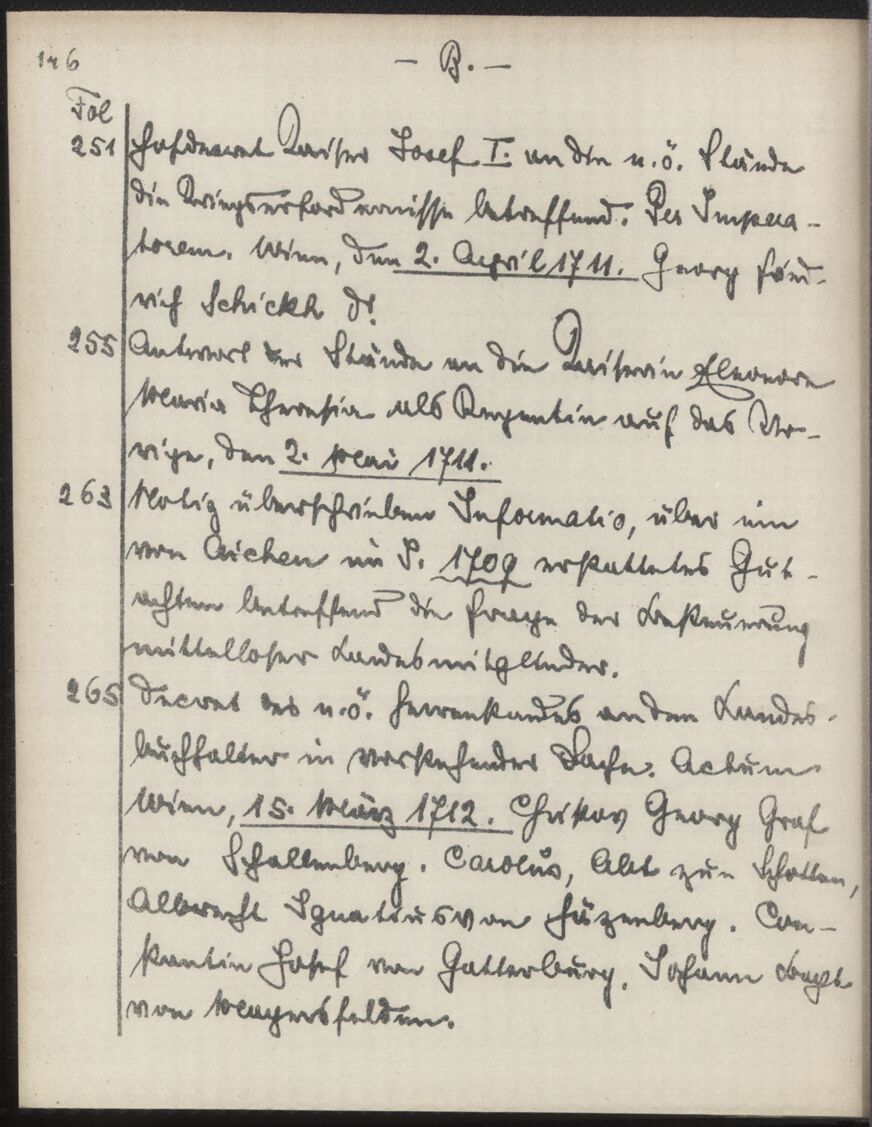 146
— B. —
Fol
251 Hofdecret Kaiser Josef I. an die n.ö. Stände
die Kriegserfordernisse betreffend. Per Impera-
torem. Wien, den 2. April 1711. Georg Fried-
rich Schickh Dr.
255 Antwort der Stände an die Kaiserin Eleonore
Maria Theresia als Regentin auf das Vo-
rige, den 2. Mai 1711.
263 Notiz überschrieben Informatio, über ein
von Aichen im J. 1709 erstattetes Gut-
achten betreffend die Frage der Besteuerung
mittelloser Landesmitglieder.
265 Decret des n.ö. Herrenstandes an den Landes-
buchhalter in vorstehender Sache. Actum
Wien, 15. März 1712. Christov Georg Graf
von Schallenberg. Carolus, Abt zun Schotten,
Albrecht Ignatius von Häzenberg. Con-
stantin Josef von Gatterburg, Johann Bapt.
von Mayersfelden.